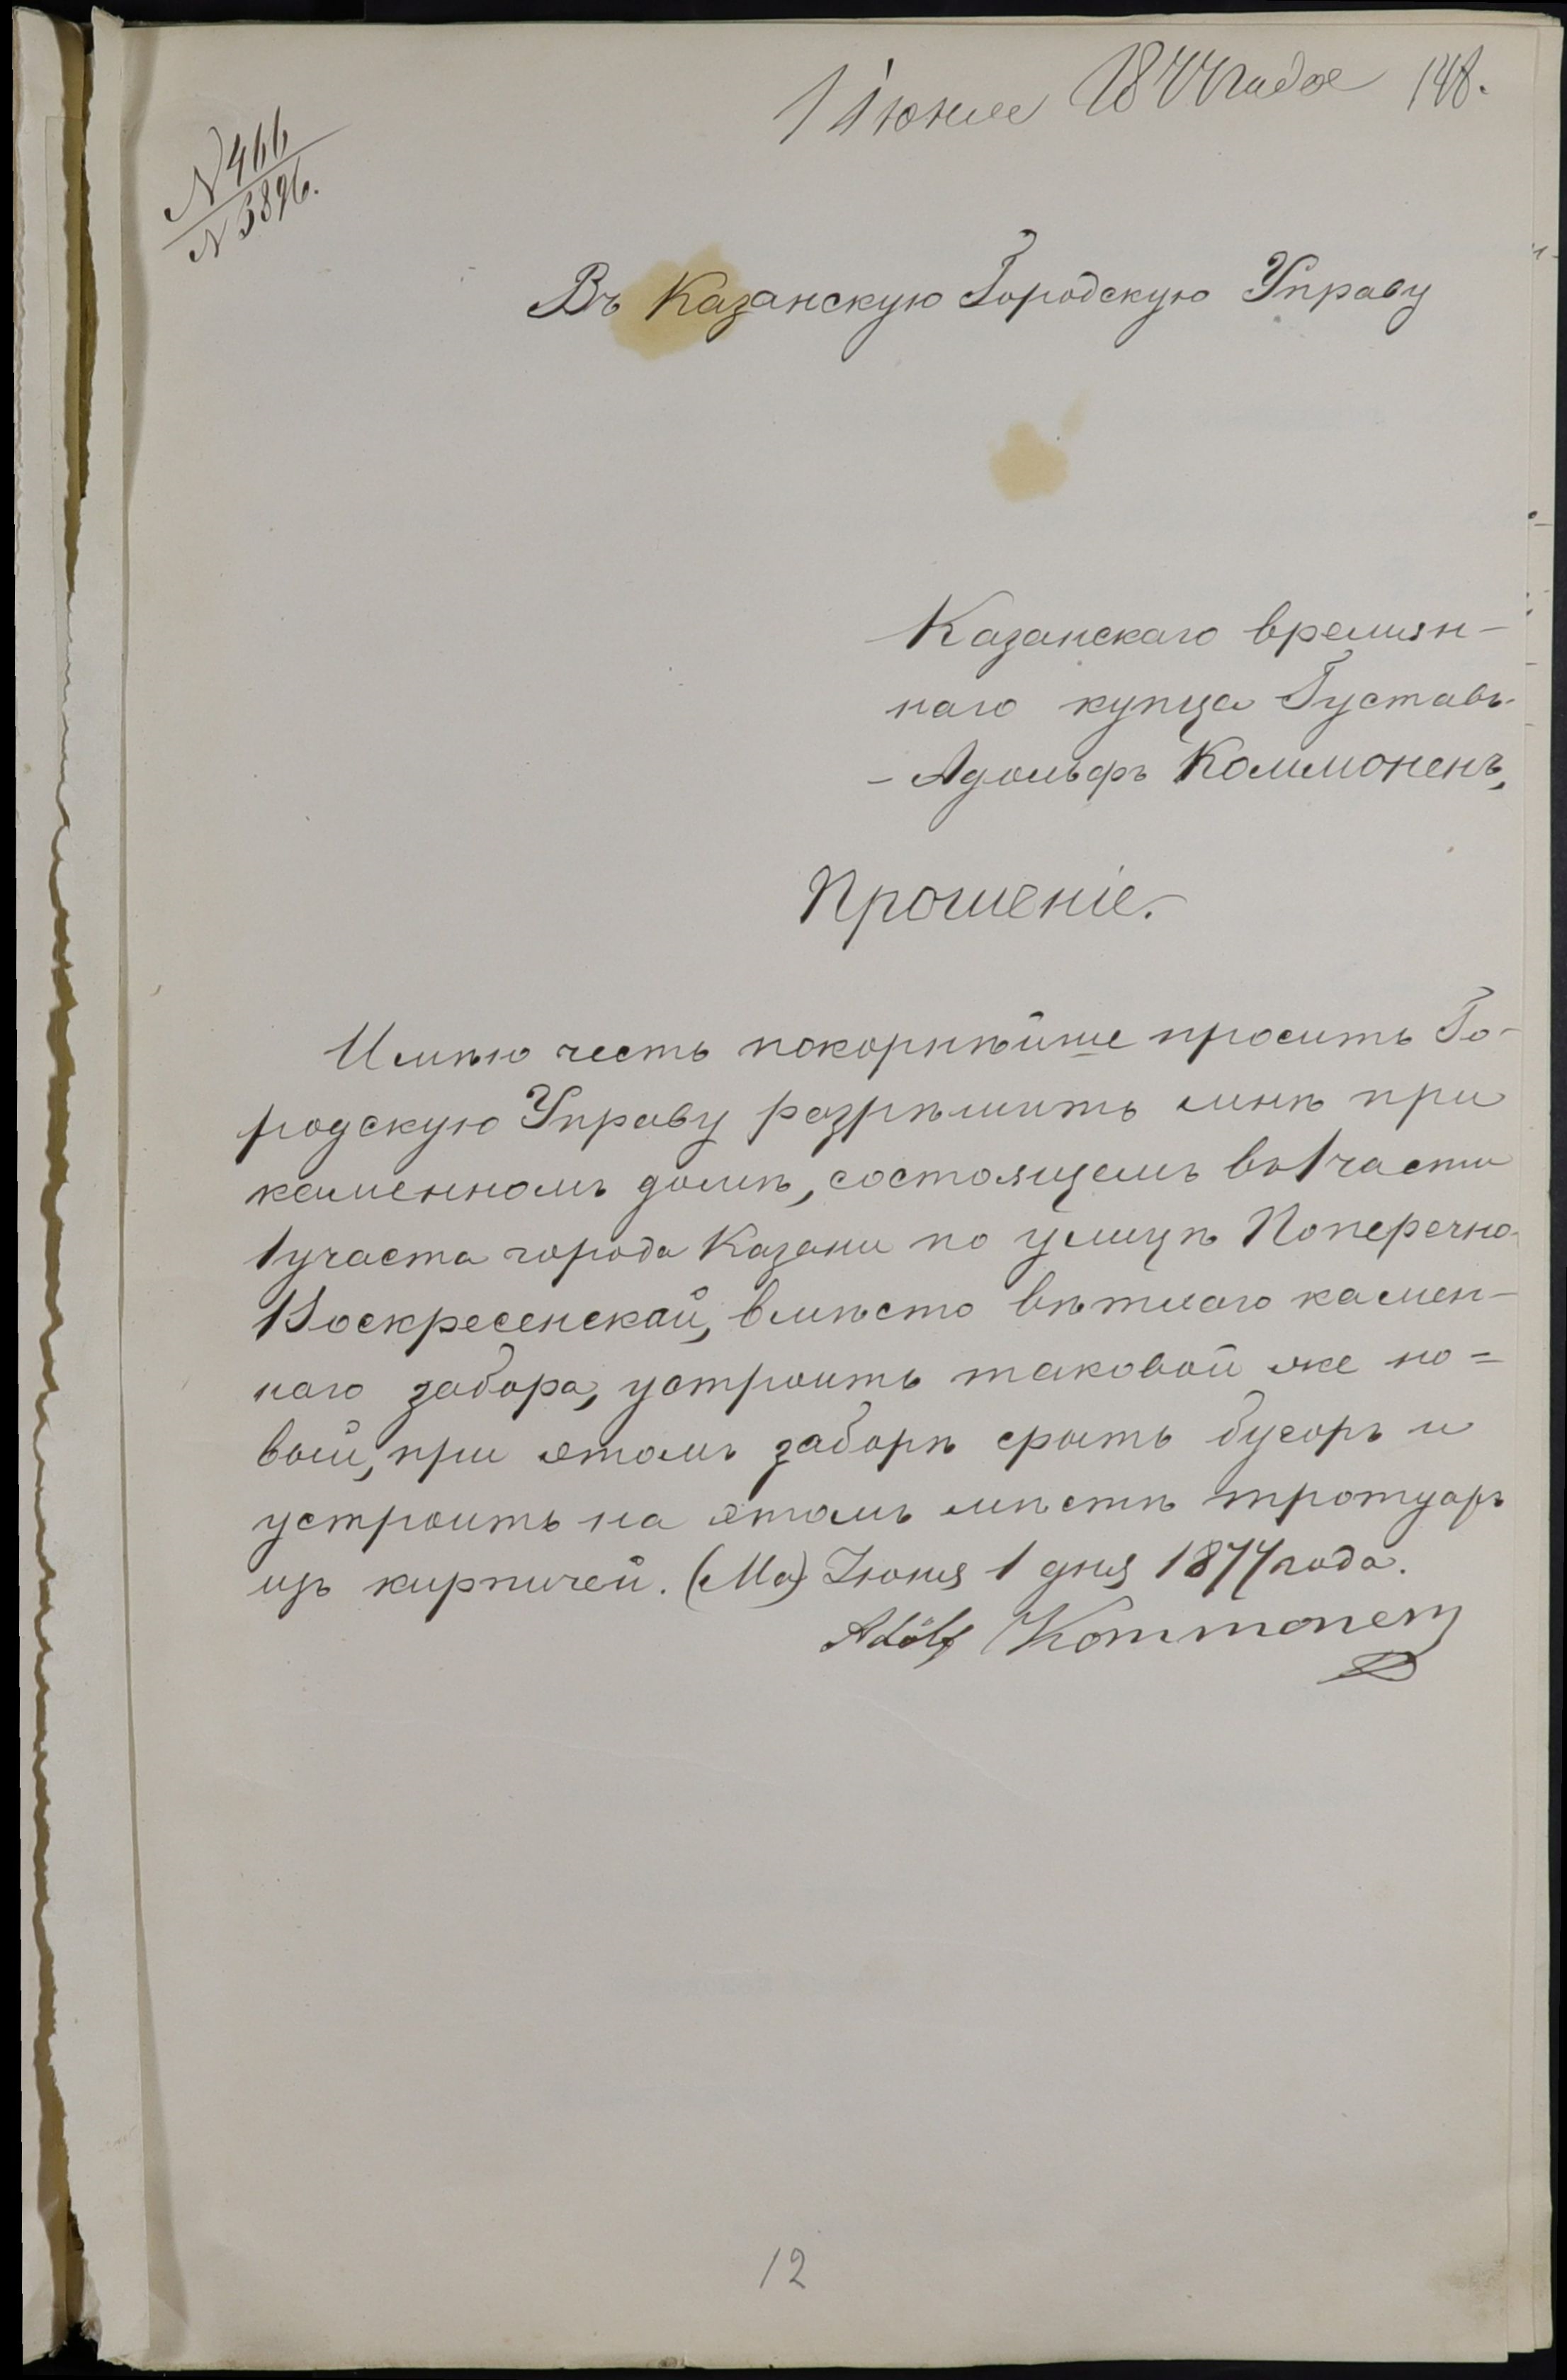 1 Июня 1877 года 148.
N 466
N 3896.
Въ Казанскую Городскую Управу
Казанскаго времян-
наго купца Густавъ-
- Адольфъ Коммоненъ,
Прошеніе.
Имѣю честь покорнѣйше просить Го-
родскую Управу разрѣшить мнѣ при
каменномъ домѣ, состоящемъ въ 1 части
1 участа города Казани по улицѣ Поперечно-
Воскресенской, вмѣсто вѣтхаго камен-
наго забора, устроить таковой же но=
вый, при этомъ заборѣ срыть бугоръ и
устроить на этомъ мѣстѣ тротуаръ
изъ кирпичей. (Ма) Іюня 1 дня 1877 года.
Adolf Kommonen
12